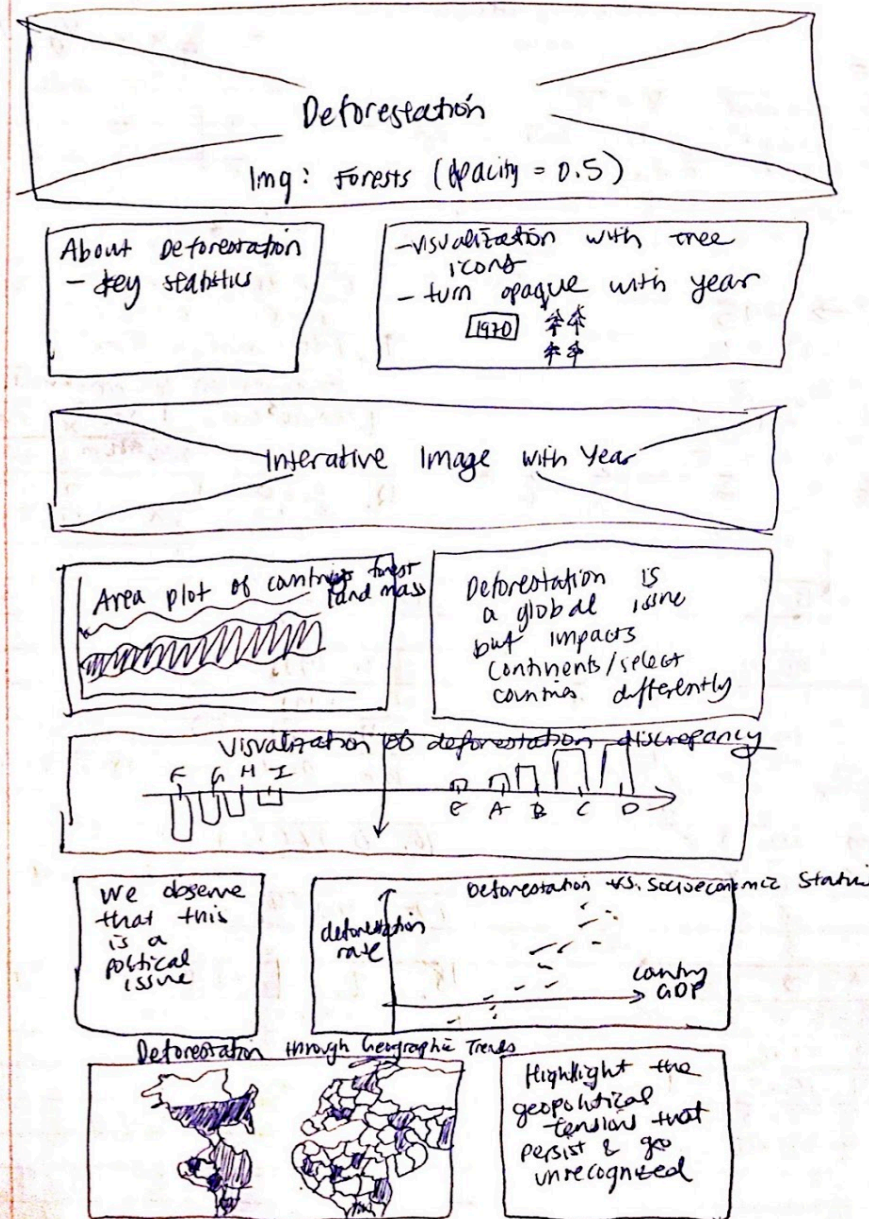 Deforestation
Img: Forests (Opacity = 0.5)
About Deforestation
- key statistics
- visualization with tree
icons
- turn opaque with year
1970
Interative Image with Year
Area plot of countries forest
land mass
Deforestation is
a global issue
but impacts
continents/select
counties differently
Visualization of deforestation discrepancy
F G H I
E A B C D
We observe
that this
is a
political
issue
Deforestation vs. Socioeconomic Status
deforestation
rate
country
GDP
Deforestation through Geographic Trends
Highlight the
geopolitical
tensions that
persist & go
unrecognized